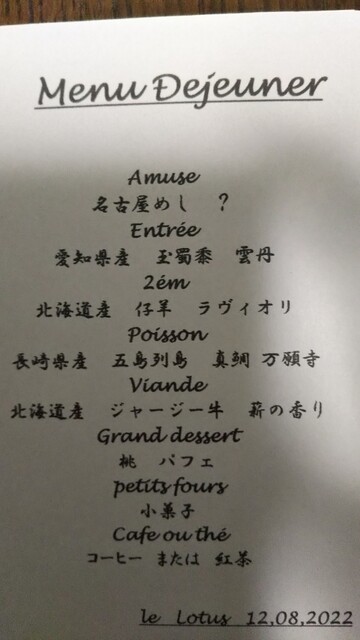 Menu Dejeuner
Amuse
名古屋めし ？
Entrée
愛知県産 玉蜀黍 雲丹
2ém
北海道産 仔羊 ラヴィオリ
Poisson
長崎県産 五島列島 真鯛 万願寺
Viande
北海道産 ジャージー牛 薪の香り
Grand dessert
桃 パフェ
petits fours
小菓子
Cafe ou thé
コーヒー または 紅茶
le Lotus 12,08,2022